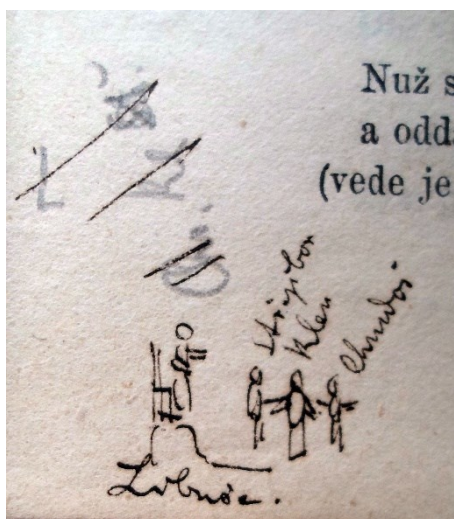 Nuž s
a odda
(vede je
Kl.
Klen
Chrudoš
Libuše.